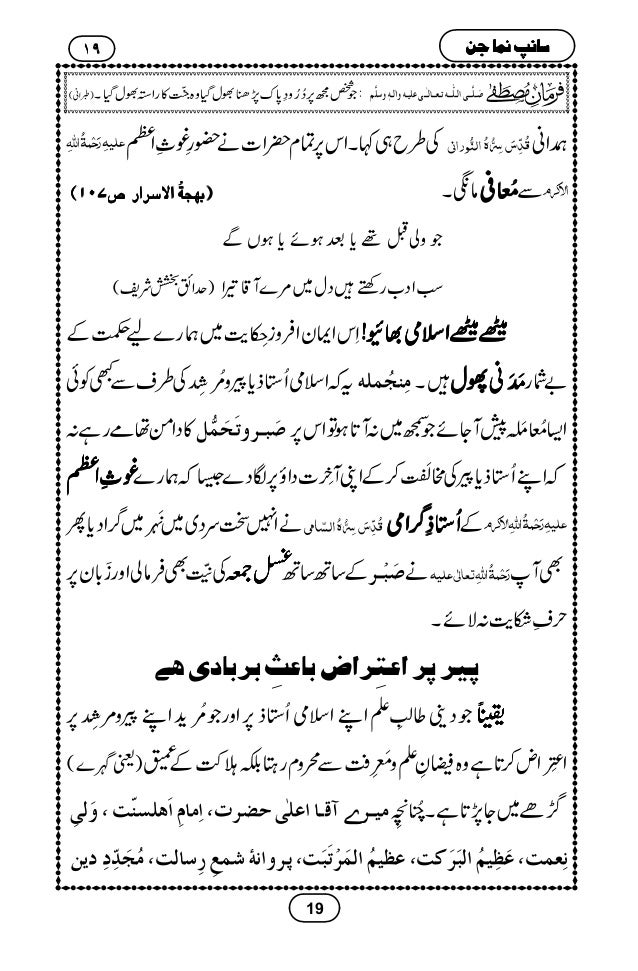 سانپ نما جن
۱۹
فرمانِ مصطفٰے صلَّی اللہ تعالٰی علیہ واٰلہٖ وسلَّم : جو شخص مجھ پر دُرُودِ پاک پڑھنا بھول گیا وہ جنّت کا راستہ بھول گیا ۔ (طبرانی)
ہمدانی قُدِّسَ سِرُّہُ النُّورانی کی طرح ہی کہا۔ اس پر تمام حضرات نے حضورِ غوثِ اعظم علیہِ رَحْمَۃُ اللہِ
الاکرم سے مُعافی مانگی۔ (بهجۃُ الاسرار ص۱۰۷)
جو ولی قبل تھے یا بعد ہوئے یا ہوں گے
سب ادب رکھتے ہیں دل میں مرے آقا تیرا (حدائقِ بخشش شریف)
میٹھے میٹھے اسلامی بھائیو! اِس ایمان افروز حِکایت میں ہمارے لیے حکمت کے
بے شمار مَدَنی پھول ہیں۔ مِنجُمله یہ کہ اسلامی اُستاذ یا پیر و مُرشِد کی طرف سے کبھی کوئی
ایسا مُعامَلہ پیش آجائے جو سمجھ میں نہ آتا ہو تو اس پر صَبر و تَحَمُّل کا دامن تھامے رہے نہ
کہ اپنے اُستاذ یا پیر کی مخالَفت کر کے اپنی آخِرت داؤ پر لگا دے جیسا کہ ہمارے غوثِ اعظم
علیہِ رَحْمَۃُ اللہِ الاکرم کے اُستاذِ گرامی قُدِّسَ سِرُّہُ السّامی نے انہیں سخت سردی میں نَہر میں گرا دیا پھر
بھی آپ رَحْمَۃُ اللہِ تعالیٰ علیہ نے صَبْر کے ساتھ ساتھ غسلِ جمعہ کی نیّت بھی فرمالی اور زَبان پر
حرفِ شکایت نہ لائے ۔
پیر پر اعتِراض باعثِ بربادی ھے
یقیناً جو دینی طالبِ علم اپنے اسلامی اُستاذ پر اور جو مُرید اپنے پیر و مرشِد پر
اعتِراض کرتا ہے وہ فیضانِ علم و مَعرِفت سے محروم رہتا بلکہ ہلاکت کے عمیق (یعنی گہرے)
گڑھے میں جا پڑتا ہے۔ چُنانچِہ میرے آقا اعلیٰ حضرت، اِمامِ اَهلسنّت ، وَلیِ
نِعمت، عَظِیمُ البَرَکت، عظیمُ المَرْتَبَت، پروانۂ شمعِ رِسالت، مُجَدِّدِ دین
19